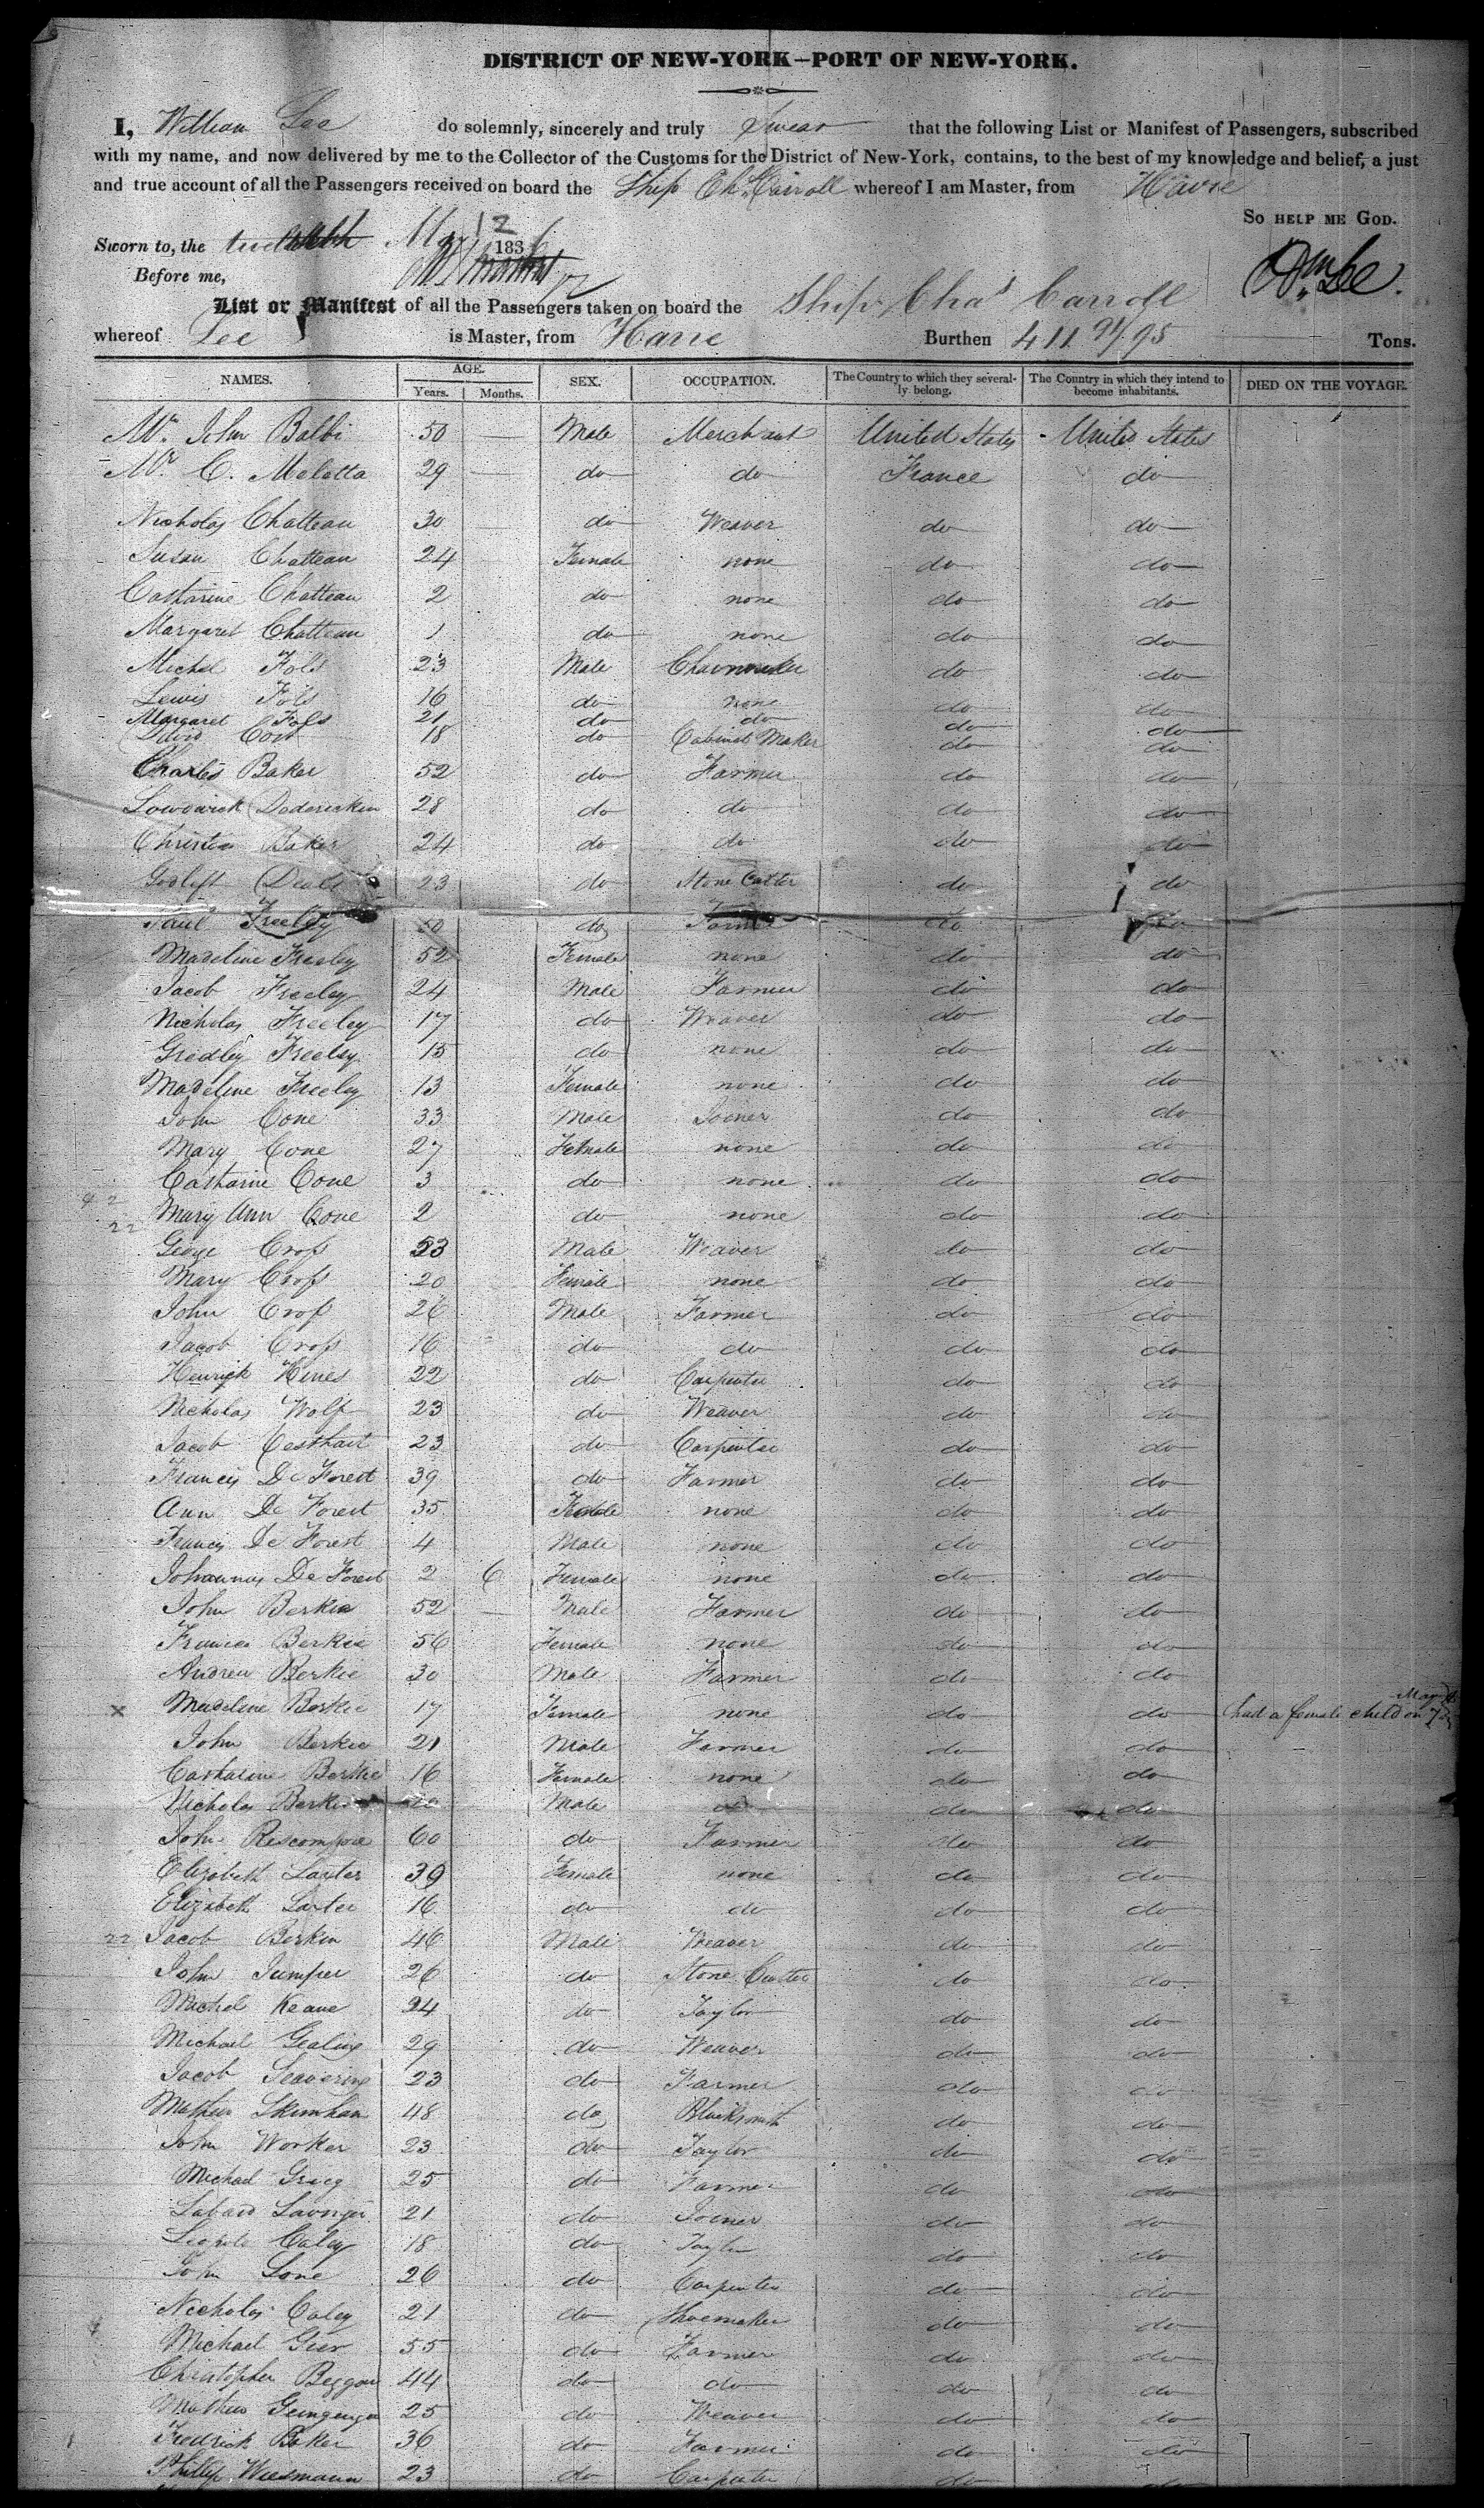 DISTRICT OF NEW-YORK—PORT OF NEW-YORK.
I, William Lee do solemnly, sincerely and truly Swear that the following List or Manifest of Passengers, subscribed
with my name, and now delivered by me to the Collector of the Customs for the District of New-York, contains, to the best of my knowledge and belief, a just
and true account of all the Passengers received on board the Ship Chs. Carroll whereof I am Master, from Havre
SO HELP ME GOD.
Sworn to, the May 12 183
Before me,
Wm Lee.
List or Manifest of all the Passengers taken on board the Ship Chas Carroll
whereof Lee is Master, from Havre Burthen 411 91/95 Tons.
NAMES. AGE. SEX. OCCUPATION. The Country to which they several- The Country in which they intend to DIED ON THE VOYAGE.
Years. Months. ly belong. become inhabitants.
Mr. John Balbi 50 — Male Merchant United States United States
Mr. C. Meletta 29 — do do France do
Nicholas Chatteau 30 do Weaver do do
Susan Chatteau 24 Female none do do
Catharine Chatteau 2 do none do do
Margaret Chatteau 1 do none do do
Michel Fols 23 Male do do
Lewis Fols 16 do none do do
Margaret Fols 21 do do do do
David 18 do Cabinet Maker do do
Charles Baker 52 do Farmer do do
28 do do do do
Christian Baker 24 do do do do
23 do Stone Cutter do do
Paul Freeley 50 do Farmer do do
Madeline Freeley 52 Female none do do
Jacob Freeley 24 Male Farmer do do
Nicholas Freeley 17 do Weaver do do
Gredley Freeley 15 do none do do
Madeline Freeley 13 Female none do do
John Cone 33 Male Joiner do do
Mary Cone 27 Female none do do
Catharine Cone 3 do none do do
Mary Ann Cone 2 do none do do
George Crofs 53 Male Weaver do do
Mary Crofs 20 Female none do do
John Crofs 26 Male Farmer do do
Jacob Crofs 16 do do do do
Henrick Hines 22 do Carpenter do do
Nicholas Wolf 23 do Weaver do do
Jacob 23 do Carpenter do do
Francis De Forest 39 do Farmer do do
Ann De Forest 35 Female none do do
Francis De Forest 4 Male none do do
Johannas De Forest 2 6 Female none do do
John Berkie 52 — Male Farmer do do
Frances Berkie 56 Female none do do
Andrew Berkie 30 Male Farmer do do
x Madeline Berkie 17 Female none do do had a female child on May
John Berkie 21 Male Farmer do do
Catharine Berkie 16 Female none do do
Nicholas Berkie Male do do
John 60 do Farmer do do
Elizabeth 39 Female none do do
Elizabeth 16 do do do do
22 Jacob Berkin 46 Male Weaver do do
John Jumper 26 do Stone Cutter do do
Michel Keane 24 do Taylor do do
Michael 29 do Weaver do do
Jacob 23 do Farmer do do
Mathew 48 do Blacksmith do do
John Worker 23 do Taylor do do
Michael 25 do Farmer do do
21 do Joiner do do
Caley 18 do Taylor do do
John Lone 26 do Carpenter do do
Nicholas Caley 21 do Shoemaker do do
Michael Geer 55 do Farmer do do
Christopher 44 do do do do
Mathew 25 do Weaver do do
Fredrick Baker 36 do Farmer do do
Phillip Wiesmann 23 do Carpenter do do